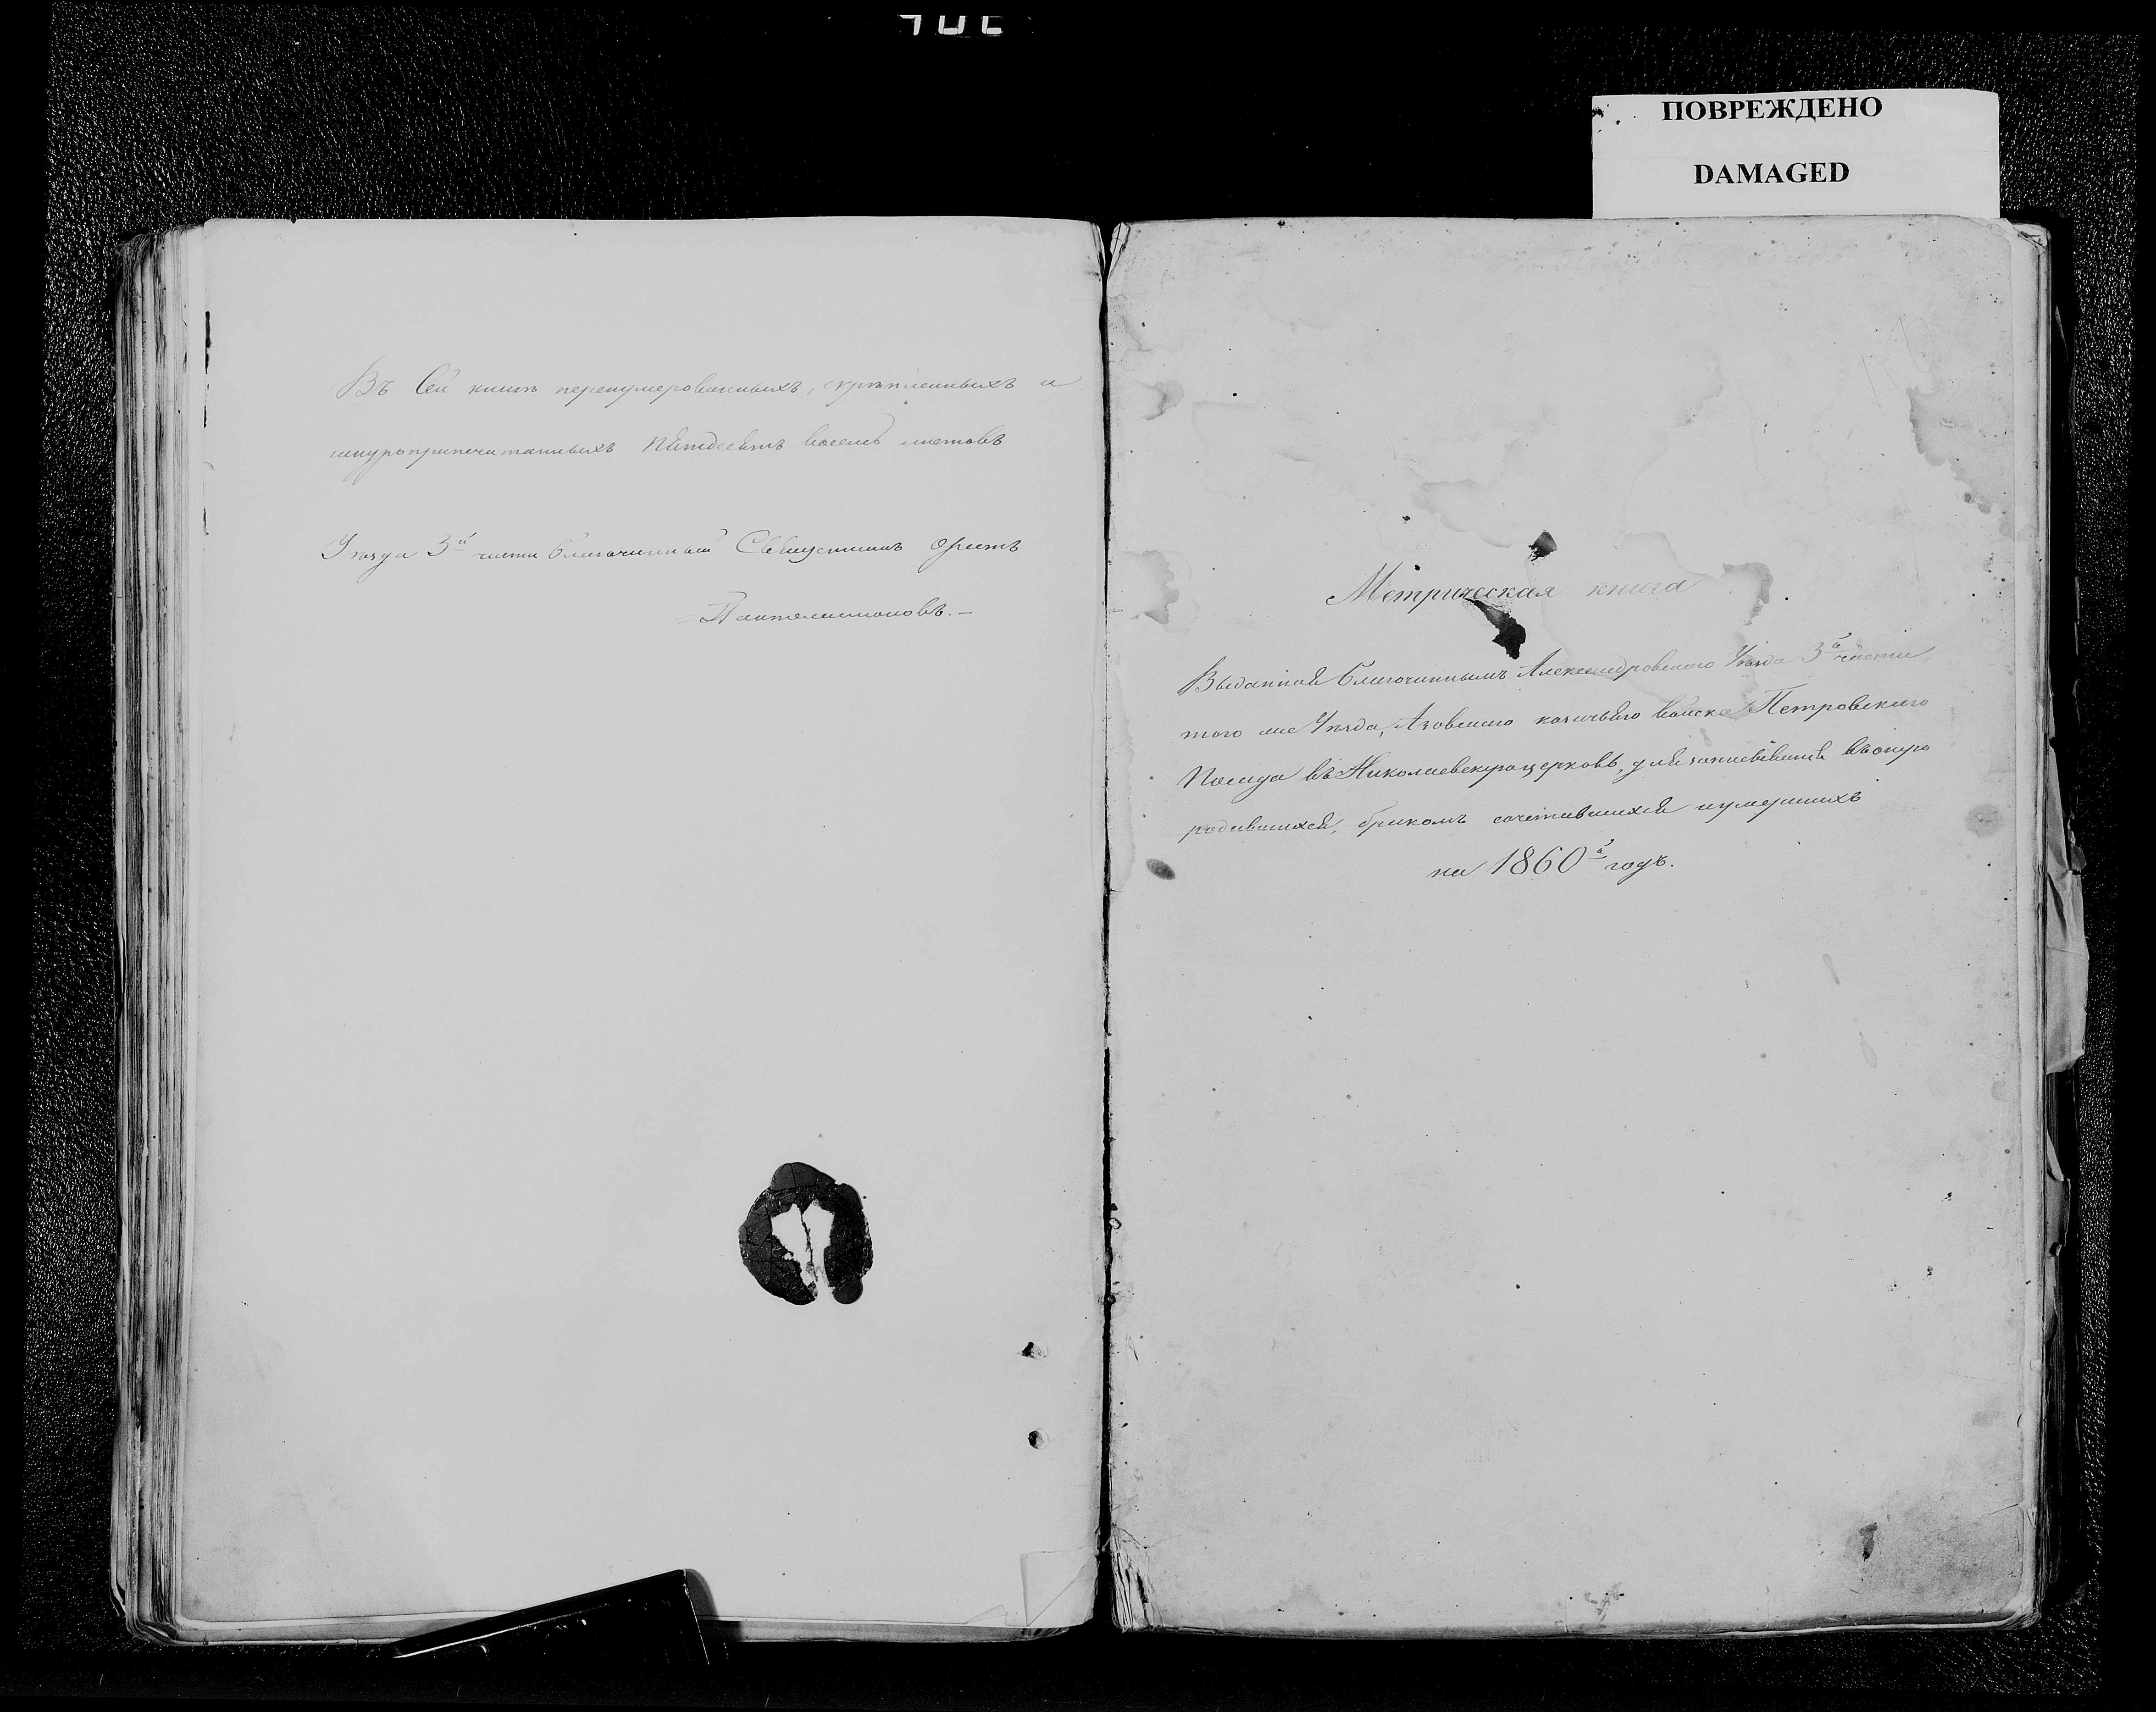 ПОВРЕЖДЕНО
DAMAGED
Въ Сей книгѣ перенумерованныхъ, скрѣпленныхъ и
шнуроприпечатанныхъ пятдесятъ восемь листовъ
Уѣзда 3й части Благочинный Священникъ Орестъ
Пантелеимоновъ.-
Метрическая книга
Выданная Благочиннымъ Александровскаго Уѣзда 3й части
того же Уѣзда, Азовскаго казачьяго войска Петровскаго
Посада въ Николаевскую церковь, для записыванія въ оную
родившихся, бракомъ сочетавшихся и умершихъ
на 1860й годъ.